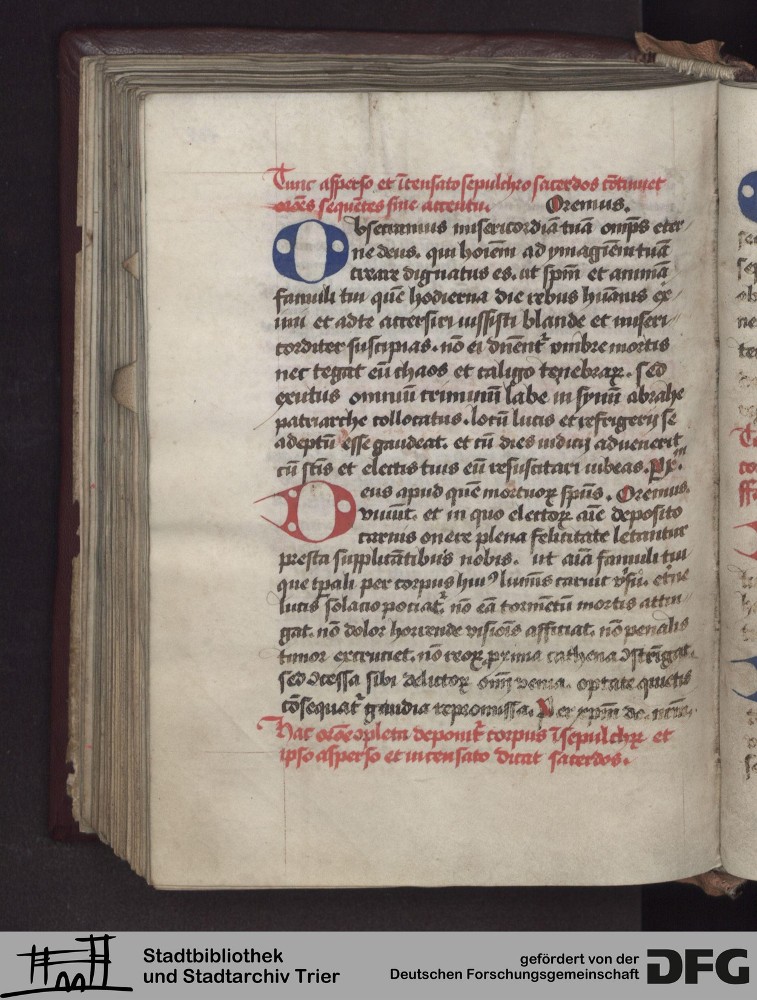 Tunc asperso et īcensato sepulchro sacerdos cōtinuet
orōēs sequētes sine accentu. Oremus.
Obsecramus misericordiā tuā omp̄s eter
ne deus. qui hoīem ad ymagīem tuā
creare dignatus es. ut sp̄m et animā
famuli tui quē hodierna die rebus hūanis ex
imi et ad te accersiri iussisti blande et miseri
corditer suscipias. nō ei dn̄ent᷑ umbre mortis
nec tegat eū chaos et caligo tenebraꝝ. sed
exutus omniū criminū labe in sinū abrahe
patriarche collocatus. locū lucis et refrigerij se
adeptū esse gaudeat. et cū dies iudicij advenerit
cū sc̄tis et electis tuis eū resuscitari iubeas. P̱ x̄m.
Deus apud quē mortuoꝝ sp̄us. Oremus.
viuūt. et in quo electoꝝ aīe deposito
carnis onere plena felicitate letantur
presta supplicātibus nobis. ut aīa famuli tui
que tp̄ali per corpus huiꝰ lumīs caruit visu. et̄ne
lucis solacio pociat᷑. nō eā tormētū mortis attin
gat. nō dolor horrende visiōis afficiat. nō penalis
timor excruciet. nō reoꝝ prima cathena ꝯstrīgat.
sed ꝯcessa sibi delictoꝝ oīm venia. optate quietis
cōsequat᷑ gaudia repromissa. Per xp̄m do. nr̄m.
Hac orōne ꝯpleta deponit᷑ corpus ī sepulchꝝ et
ipso asperso et incensato dicat sacerdos.
Stadtbibliothek
und Stadtarchiv Trier
gefördert von der
Deutschen Forschungsgemeinschaft
DFG